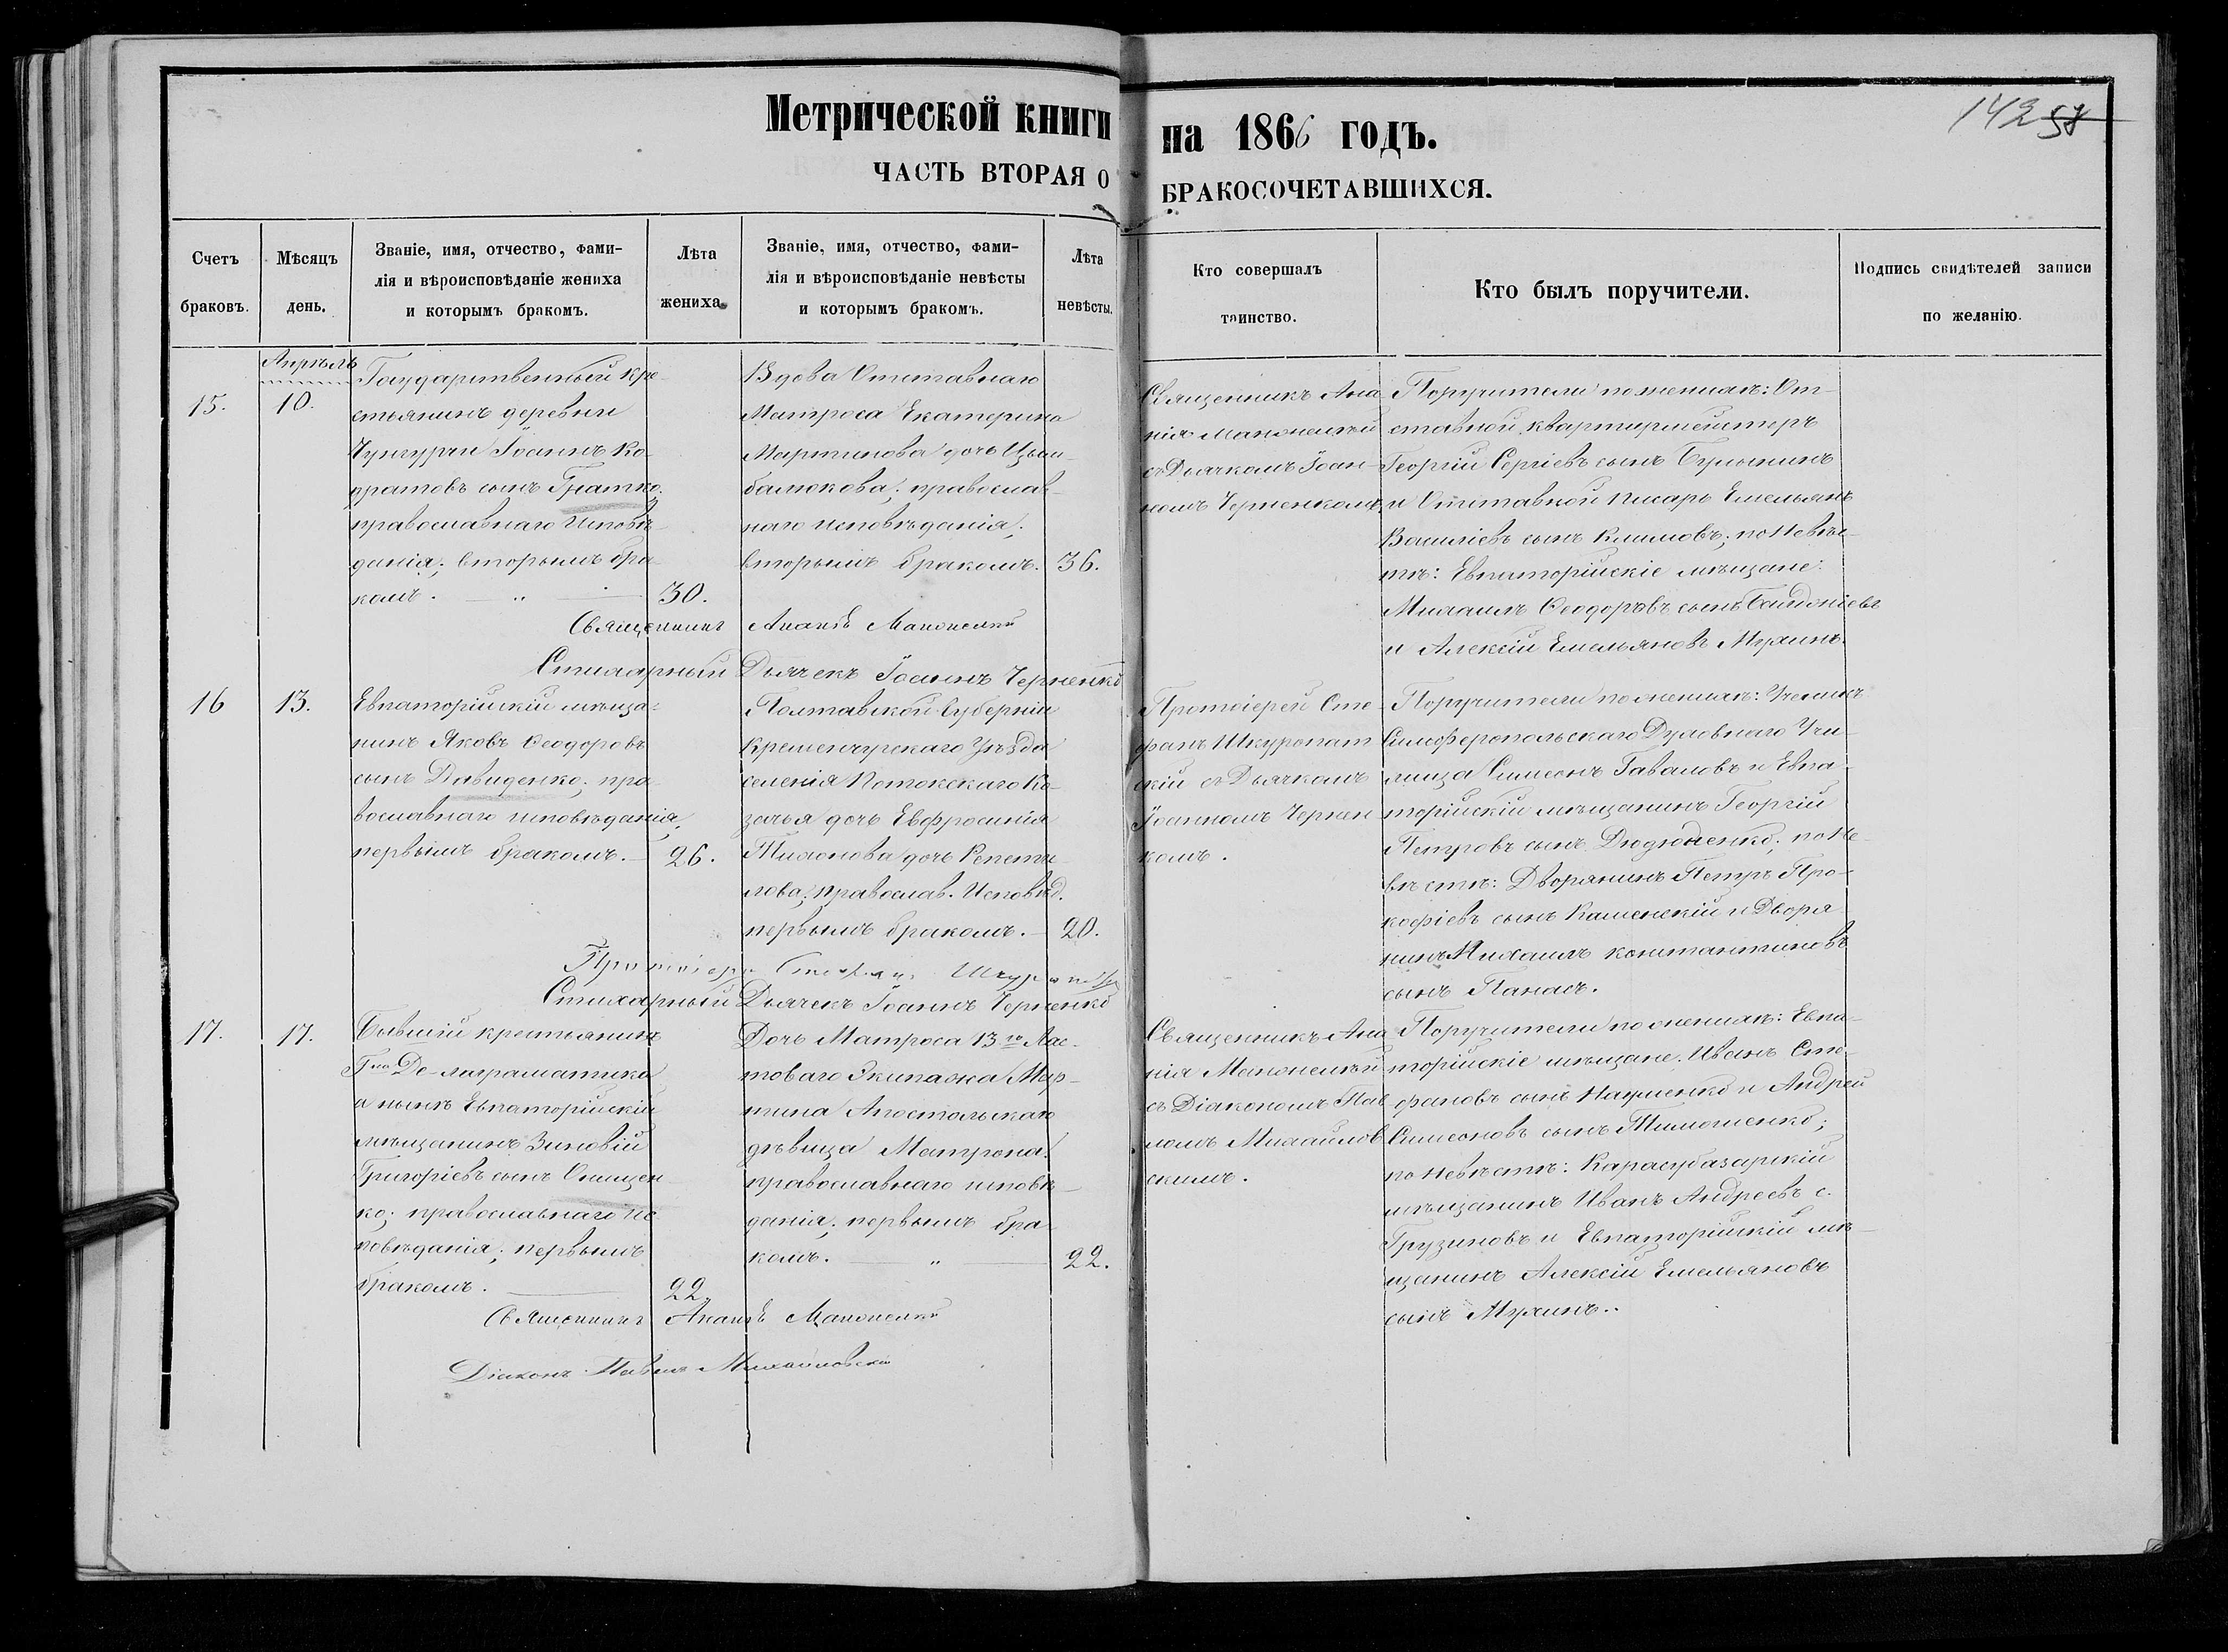 Метрической книги на 1866 годъ.
142 57
ЧАСТЬ ВТОРАЯ О БРАКОСОЧЕТАВШИХСЯ.
Счетъ
браковъ.
Мѣсяцъ
день.
Званіе, имя, отчество, фами-
лія и вѣроисповѣданіе жениха
и которымъ бракомъ.
Лѣта
жениха
Званіе, имя, отчество, фами-
лія и вѣроисповѣданіе невѣсты
и которымъ бракомъ.
Лѣта
невѣсты.
Кто совершалъ
таинство.
Кто былъ поручители.
Подпись свидѣтелей записи
по желанію.
Апрѣль
15.
10.
Государственный кре-
стьянинъ деревни
Іоаннъ Ко-
дратовъ сынъ Гнатко,
православнаго исповѣ-
данія; вторымъ бра-
комъ.
30.
Вдова Отставнаго
Матроса Екатерина
Мартинова дочь Цым-
балюкова; православ-
наго исповѣданія;
вторымъ бракомъ.
36.
Священникъ Ана-
нія Маконскій
съ Дьячкомъ Іоан-
номъ Черненкомъ
Поручители по женихѣ: От-
ставной квартирмейстръ
Георгій Сергіевъ сынъ
и Отставной писарь Емельянъ
Василіевъ сынъ Климовъ; по невѣ-
стѣ: Евпаторійскіе мѣщане:
Михаилъ Ѳеодоровъ сынъ
и Алексій Емельяновъ Мухинъ.
Священникъ
Стихарный Дьячекъ Іоаннъ Черненко
16
13.
Евпаторійскій мѣща-
нинъ Яковъ Ѳеодоровъ
сынъ Давиденко; пра-
вославнаго исповѣданія,
первымъ бракомъ.
26.
Полтавской Губерніи
Кременчугскаго Уѣзда
селенія Потокскаго Ко-
зачья дочь Евфросинія
дочь Репети-
лова; православ. Исповѣд.
первымъ бракомъ.
20.
Протоіерей Сте-
фанъ Шкуропат-
скій съ Дьячкомъ
Іоанномъ Чернен-
комъ.
Поручители по женихѣ: Ученикъ
Симферопольскаго Духовнаго Учи-
лища Симеонъ Гаваловъ и Евпа-
торійскій мѣщанинъ Георгій
Петровъ сынъ; по не-
вѣстѣ: Дворянинъ Петръ Про-
кофіевъ сынъ Каменскій и Дворя-
нинъ Михаилъ Константиновъ
сынъ Панасъ.
Протоіерей Стефанъ
Стихарный Дьячекъ Іоаннъ Черненко
17.
17.
Бывшій крестьянинъ
Г-на Де-лаграматика
а нынѣ Евпаторійскій
мѣщанинъ Зиновій
Григоріевъ сынъ Онищен-
ко; православнаго ис-
повѣданія; первымъ
бракомъ.
22.
Дочь Матроса 13го Лас-
товаго Экипажа Мар-
тина Апостольскаго
дѣвица Матрона
православнаго исповѣ-
данія; первымъ бра-
комъ.
22.
Священникъ Ана-
нія Маконскій
съ Діакономъ Пав-
ломъ Михайлов-
скимъ.
Поручители по женихѣ: Евпа-
торійскіе мѣщане. Иванъ Сте-
фановъ сынъ Науменко и Андрей
Симеоновъ сынъ Тимошенко;
по невѣстѣ: Карасубазарскій
мѣщанинъ Иванъ Андреевъ с.
Грузиновъ и Евпаторійскій мѣ-
щанинъ Алексій Емельяновъ
сынъ Мухинъ..
Священникъ
Діаконъ Павелъ Михайловскій